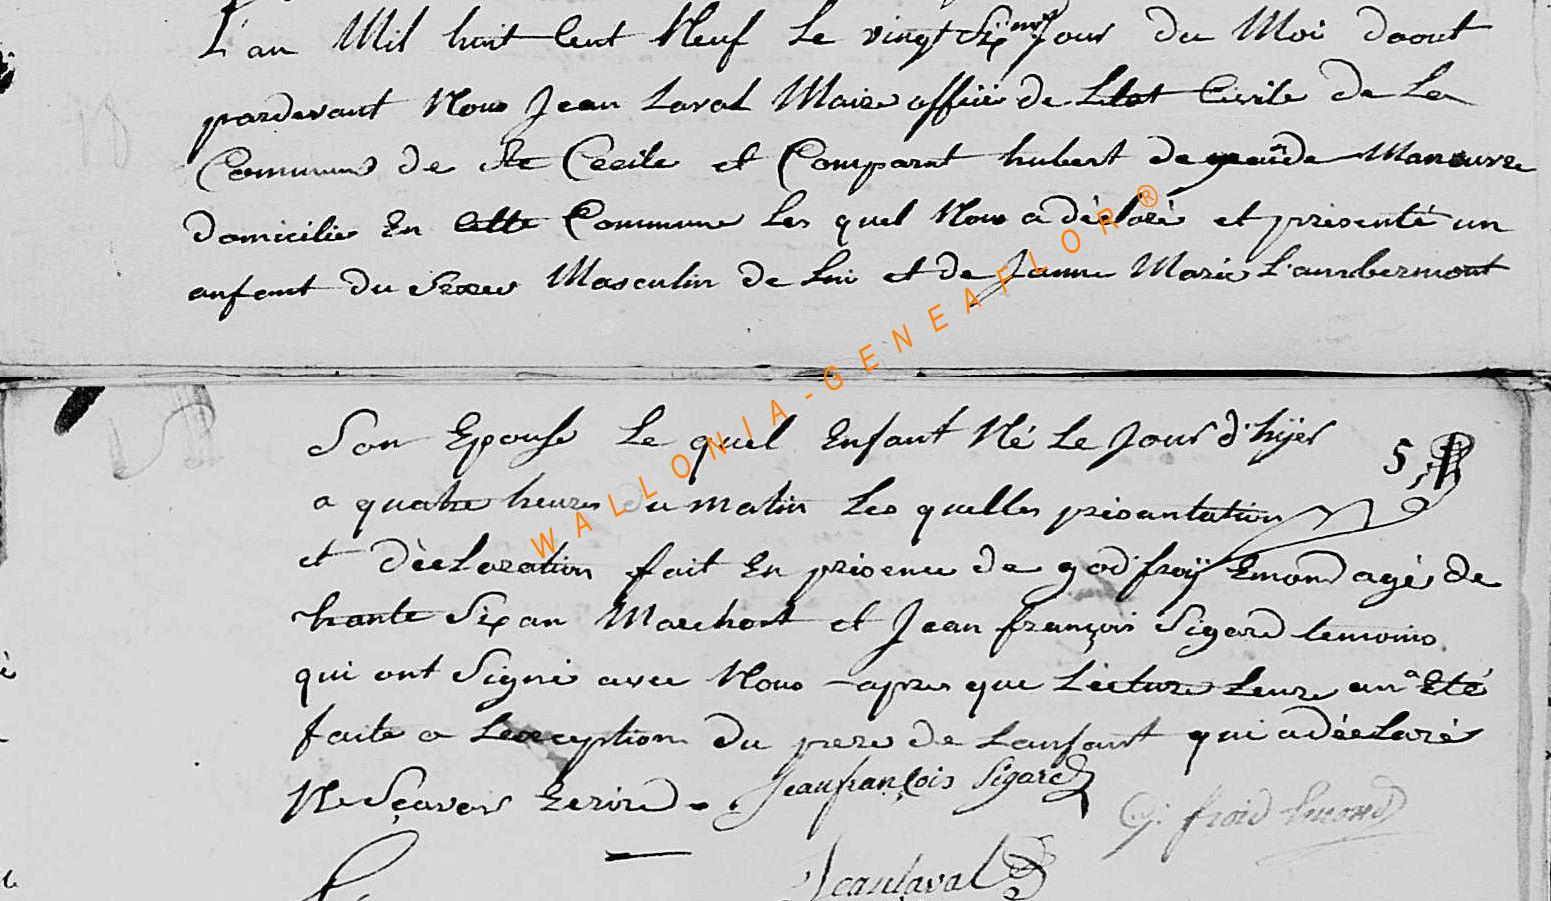 L'an Mil huit Cent Neuf Le vingt Sixme Jour du Moi daout
pardevant Nous Jean Laval Maire officie de Letat Civile de La
Commune de Ste Cecile et Comparat hubert de Manouvre
domicilie En Cette Commune Les quel Nous a déclaré et présenté un
anfant du Sexes Masculin de Lui et de Janne Marie Lambermont
Son Epouse Le quel Enfant Né Le Jour d'hÿer
5
a quatre heures du matin Les quelles présantation
et déclaration fait En présence de godfroÿ Emond agé de
trante Six an Marchort et Jean françois Sigard temoins
qui ont Signé avec Nous apres que Lecture Leure an a Eté
faite a Leexception du pere de Lanfant qui a déclaré
Ne Sçavoir Ecrire Jeanfrançois Sigard
G: froid Emond
Jean Laval
WALLONIA-GENEAFLOR®